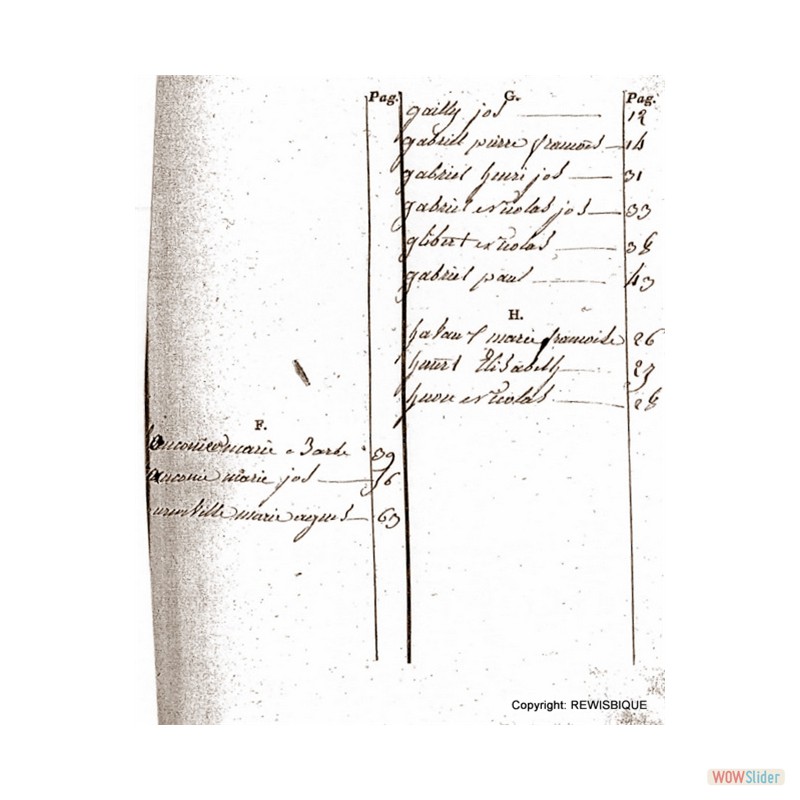 Pag.
F.
marie Barbe 39
marie jos 56
marie agnes 63
G. Pag.
gailly jos 12
gabriel pierre francois 14
gabriel henri jos 31
gabriel nicolas jos 33
glibert nicolas 38
gabriel paul 43
H.
marie francoise 26
huart Elisabeth 27
nicolas 28
Copyright: REWISBIQUE
WOWSlider